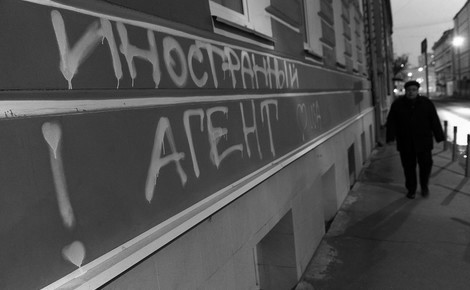 ИНОСТРАННЫЙ
! АГЕНТ